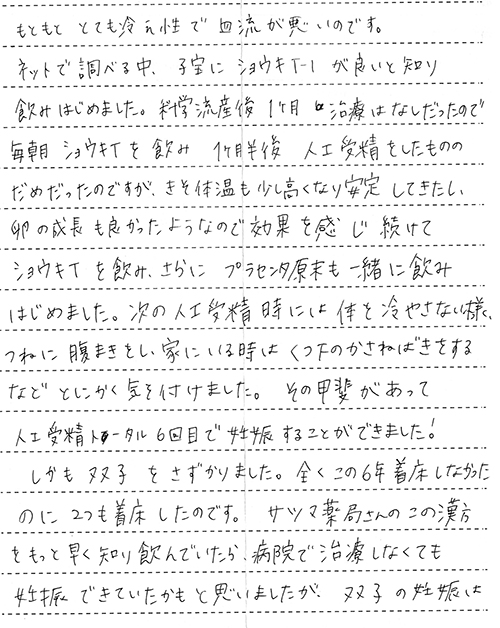 もともと とても冷え性で 血流が悪いのです。
ネットで調べる中、子宝に ショウキT-1 が良いと知り
飲みはじめました。科学流産後 1ヶ月 治療はなしだったので
毎朝 ショウキTを飲み 1ヶ月半後 人工受精をしたものの
だめだったのですが、きそ体温も少し高くなり安定してきたし、
卵の成長も良かったようなので効果を感じ続けて
ショウキTを飲み、さらに プラセンタ原末も一緒に飲み
はじめました。次の人工受精時には体を冷やさない様、
つねに腹まきをし、家にいる時は くつ下のかさねばきをする
など とにかく気を付けました。その甲斐があって
人工受精トータル6回目で妊娠することができました!
しかも双子をさずかりました。全くこの6年着床しなかった
のに2つも着床したのです。サツマ薬局さんのこの漢方
をもっと早く知り飲んでいたら、病院で治療しなくても
妊娠できていたかもと思いましたが、双子の妊娠は